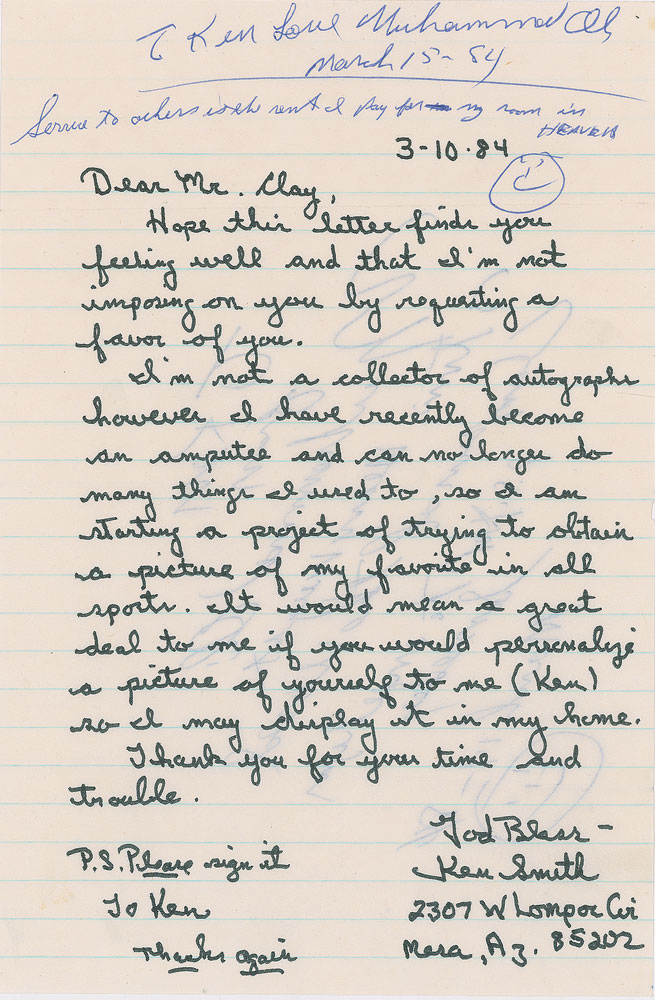 To Ken Love Muhammad Ali
March 15-84
Service to others is the rent I pay for my room in
HEAVEN
3-10-84
Dear Mr. Clay,
Hope this letter finds you
feeling well and that I'm not
imposing on you by requesting a
favor of you.
I'm not a collector of autographs
however I have recently become
an amputee and can no longer do
many things I used to, so I am
starting a project of trying to obtain
a picture of my favorite in all
sports. It would mean a great
deal to me if you would personalize
a picture of yourself to me (Ken)
so I may display it in my home.
Thank you for your time and
trouble.
God Bless -
Ken Smith
2307 W Lompoc Cir
Mesa, Az. 85202
P.S. Please sign it
To Ken
Thanks again